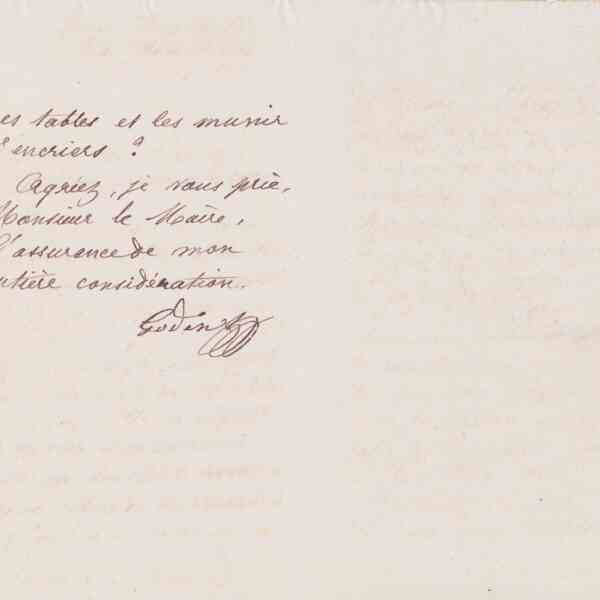 es tables et les munir
d'encriers ?
Agréez, je vous prie,
Monsieur le Maire,
l'assurance de mon
entière considération.
Godin